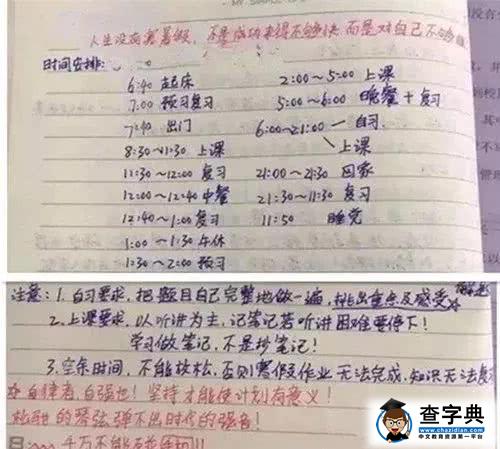 人生没有寒暑假，不是成功来得不够快，而是对自己不够狠
时间安排：
6:40 起床
7:00 预习复习
7:40 出门
8:30~11:30 上课
11:30~12:00 复习
12:00~12:40 中餐
12:40~1:00 复习
1:00~1:30 午休
1:30~2:00 预习
2:00~5:00 上课
5:00~6:00 晚餐+复习
6:00~21:00 自习
上课
21:00~21:30 回家
21:30~11:30 复习
11:50 睡觉
注意：1. 自习要求，把题目自己完整地做一遍，挑出重点及感受
2. 上课要求，以听讲为主，记笔记若听讲困难要停下！
学习做笔记，不是抄笔记！
3. 空余时间，不能放松，否则寒假及作业无法完成，知识无法复
自律者，自强也！坚持才能使计划有意义！
松弛的琴弦弹不出时代的强音！
千万不能
查字典
www.chazidian.com
中文教育资源第一平台